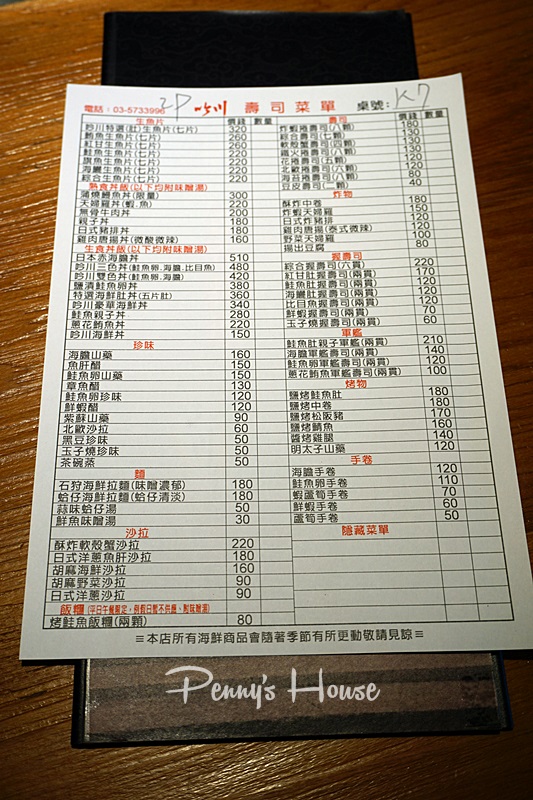 電話：03-5733996 2P 吵川 壽司菜單 桌號：K7
生魚片 價錢 數量
吵川特選(肚)生魚片(七片) 320
鮪魚生魚片(七片) 300
紅甘生魚片(七片) 260
鮭魚生魚片(七片) 220
旗魚生魚片(七片) 220
海鱺生魚片(七片) 220
綜合生魚片(七片) 220
熱食丼飯(以下均附味噌湯)
蒲燒鰻魚丼(限量) 300
天婦羅丼(蝦.魚) 220
無骨牛肉丼 200
親子丼 180
日式豬排丼 180
雞肉唐揚丼(微酸微辣) 160
生食丼飯(以下均附味噌湯)
日本赤海膽丼 510
吵川三色丼(鮭魚卵.海膽.比目魚) 480
吵川雙色丼(鮭魚卵.海膽) 420
鹽漬鮭魚卵丼 380
特選海鮮肚丼(五片肚) 360
吵川豪華海鮮丼 340
鮭魚親子丼 280
蔥花鮪魚丼 220
吵川海鮮丼 150
珍味
海膽山藥 160
魚肝醋 150
鮭魚卵山藥 150
章魚醋 130
鮭魚卵珍味 120
鮮蝦醋 120
紫蘇山藥 90
北歐沙拉 60
黑豆珍味 50
玉子燒珍味 50
茶碗蒸 50
麵
石狩海鮮拉麵(味噌濃郁) 180
蛤仔海鮮拉麵(蛤仔清淡) 180
蒜味蛤仔湯 50
鮮魚味噌湯 30
沙拉
酥炸軟殼蟹沙拉 220
日式洋蔥魚肝沙拉 180
胡麻海鮮沙拉 160
胡麻野菜沙拉 90
日式洋蔥沙拉 90
飯糰 (平日午餐限定，例假日暫不供應、附味噌湯)
烤鮭魚飯糰(兩顆) 80
壽司 價錢 數量
炸蝦捲壽司(八顆) 180
綜合壽司(七顆) 130
軟殼蟹壽司(四顆) 130
鐵火捲壽司(八顆) 130
花捲壽司(五顆) 120
北歐捲壽司(六顆) 120
海苔捲壽司(八顆) 80
豆皮壽司(二顆) 40
炸物
酥炸中卷 180
炸蝦天婦羅 150
日式炸豬排 120
雞肉唐揚(泰式微辣) 120
野菜天婦羅 100
揚出豆腐 80
握壽司
綜合握壽司(六貫) 220
紅甘肚握壽司(兩貫) 170
鮭魚肚握壽司(兩貫) 120
海鱺肚握壽司(兩貫) 120
比目魚握壽司(兩貫) 120
鮮蝦握壽司(兩貫) 70
玉子燒握壽司(兩貫) 60
軍艦
鮭魚肚親子軍艦(兩貫) 210
海膽軍艦壽司(兩貫) 140
鮭魚卵軍艦壽司(兩貫) 120
蔥花鮪魚軍艦壽司(兩貫) 100
烤物
鹽烤鮭魚肚 180
鹽烤中卷 180
鹽烤松阪豬 170
鹽烤鯖魚 160
醬烤雞腿 140
明太子山藥 120
手卷
海膽手卷 120
鮭魚卵手卷 110
蝦蘆筍手卷 70
鮮蝦手卷 60
蘆筍手卷 50
隱藏菜單
≡本店所有海鮮商品會隨著季節有所更動敬請見諒≡
Penny's House